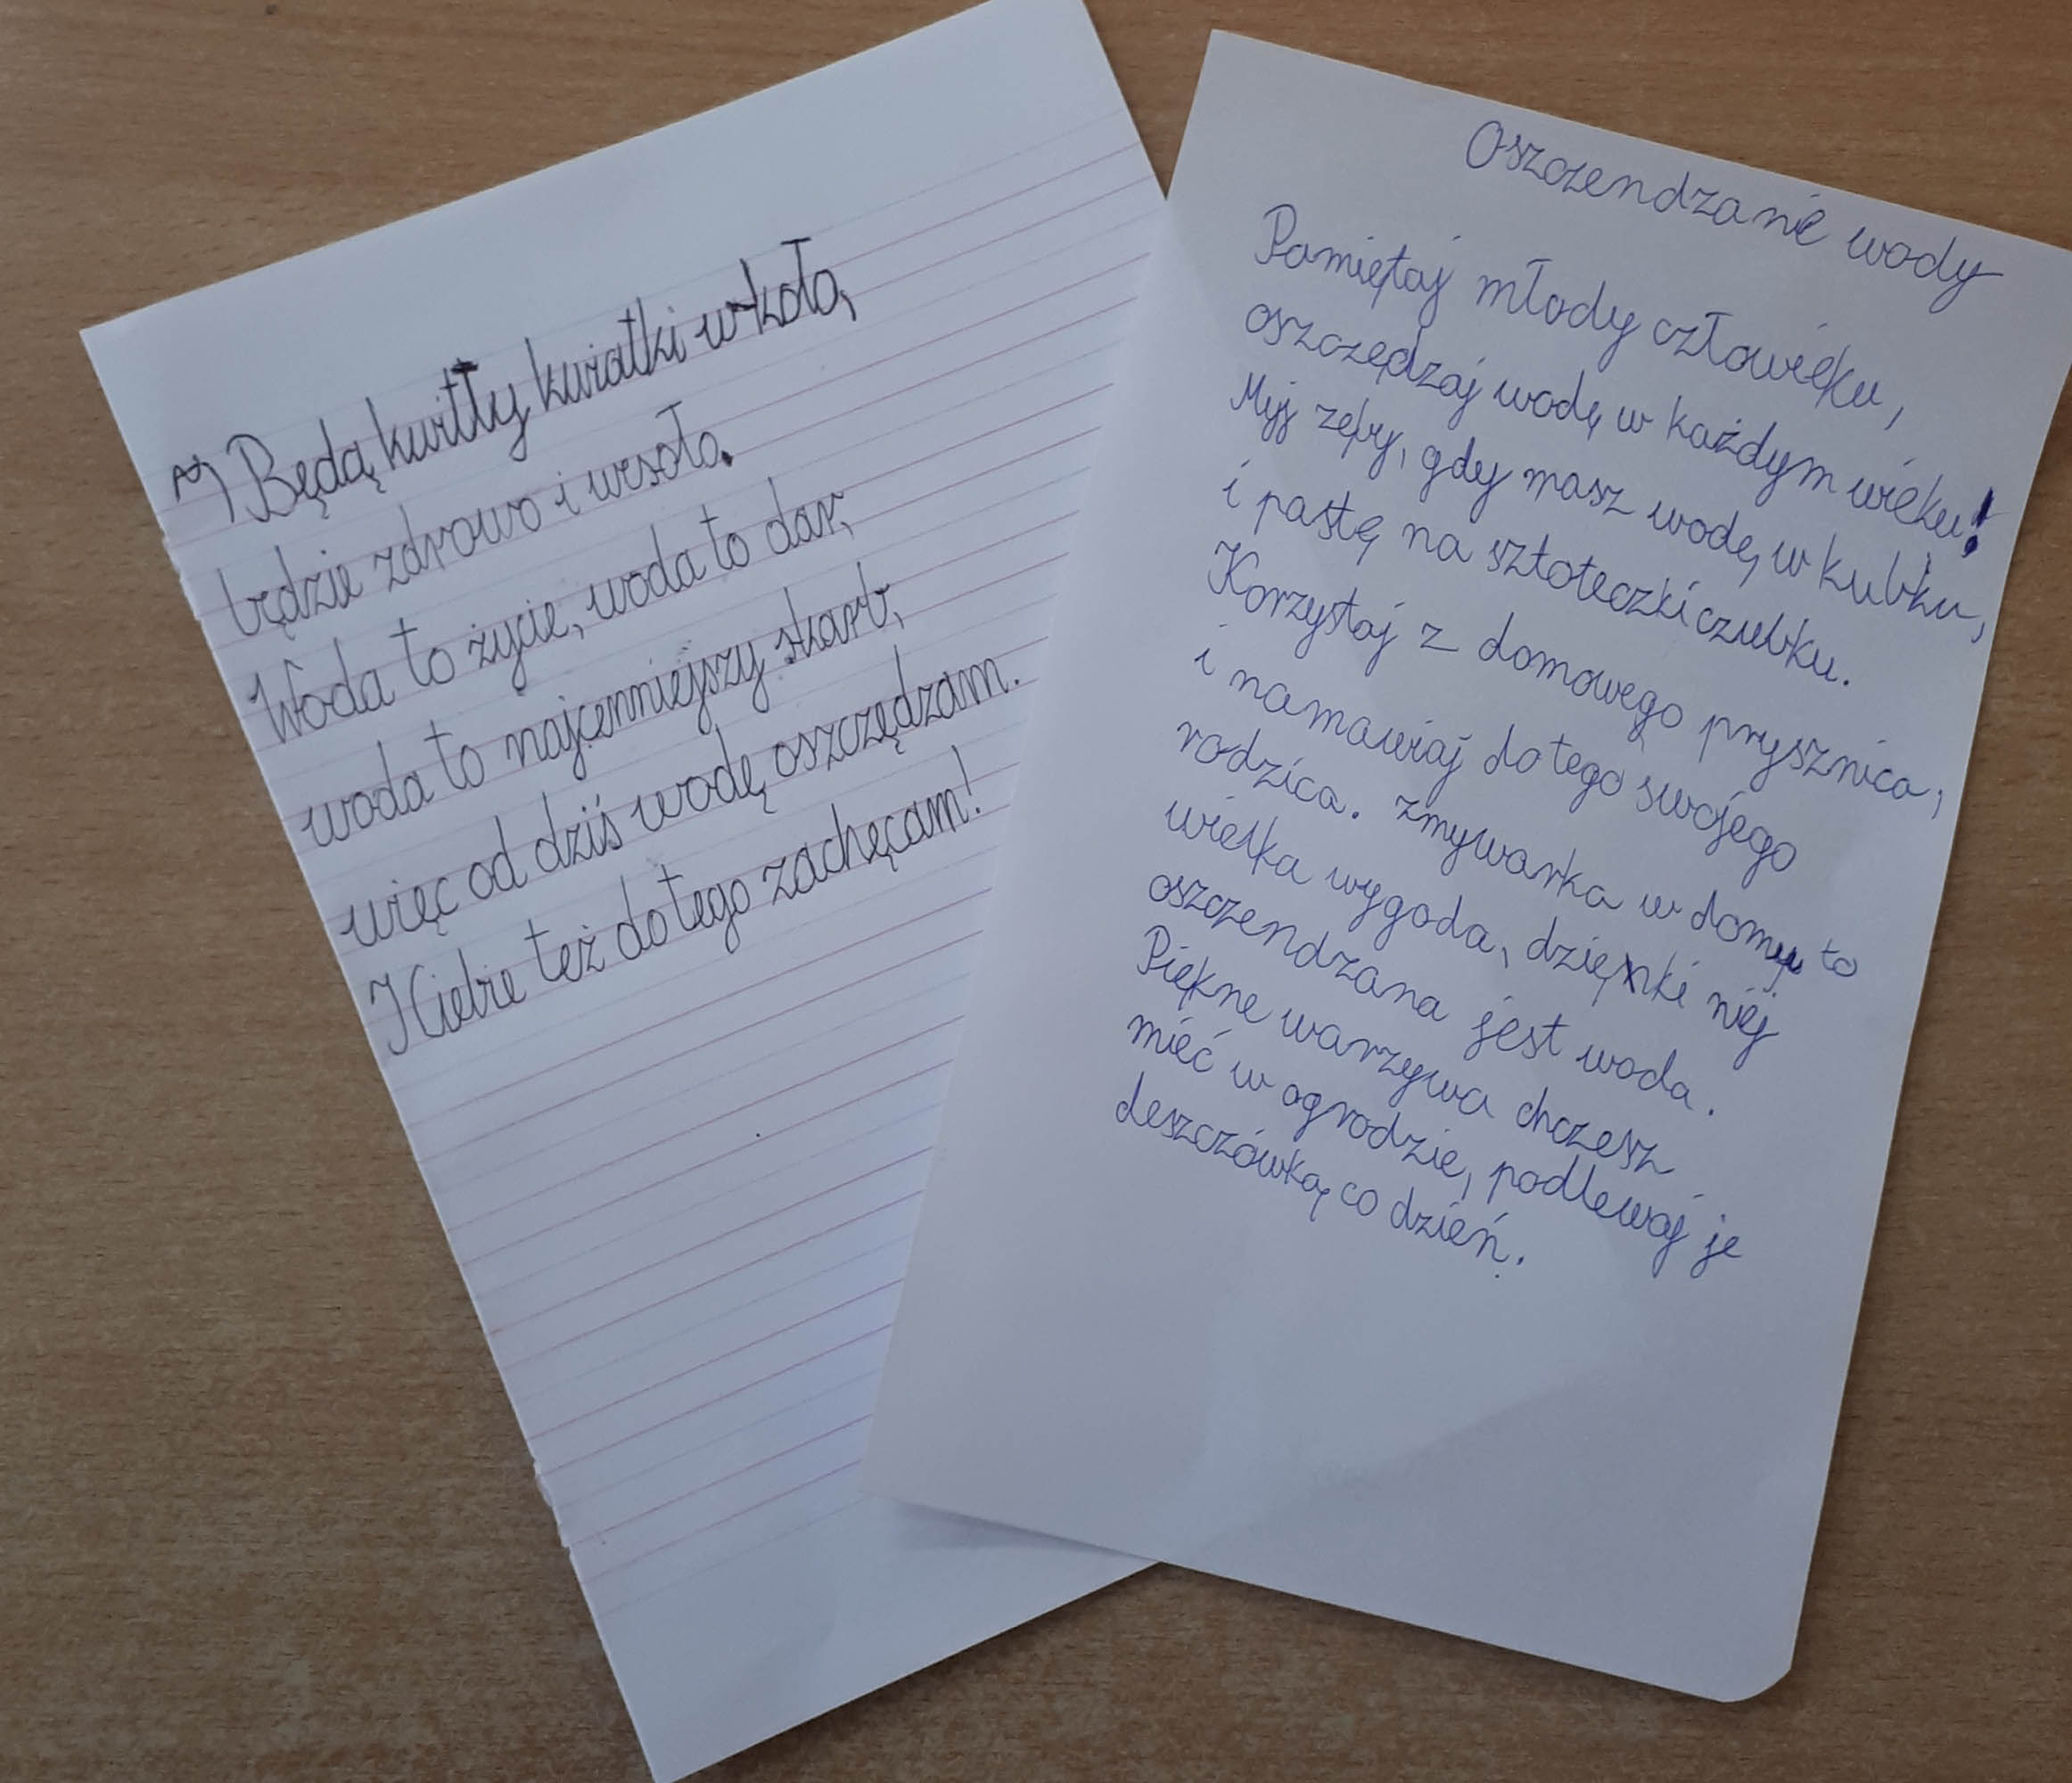 Będą kwitły kwiatki wkoło,
będzie zdrowo i wesoło.
Woda to życie, woda to dar,
woda to najcenniejszy skarb,
więc od dziś wodę oszczędzam.
I Ciebie też do tego zachęcam!
Oszczendzanie wody
Pamiętaj młody człowieku,
oszczędzaj wodę w każdym wieku!
Myj zęby, gdy masz wodę w kubku,
i pastę na sztoteczki czubku.
Korzystaj z domowego prysznica,
i namawiaj do tego swojego
rodzica. Zmywarka w domu to
wielka wygoda, dzięki niej
oszczendzana jest woda.
Piękne warzywa chczesz
mieć w ogrodzie, podlewaj je
deszczówką co dzień.